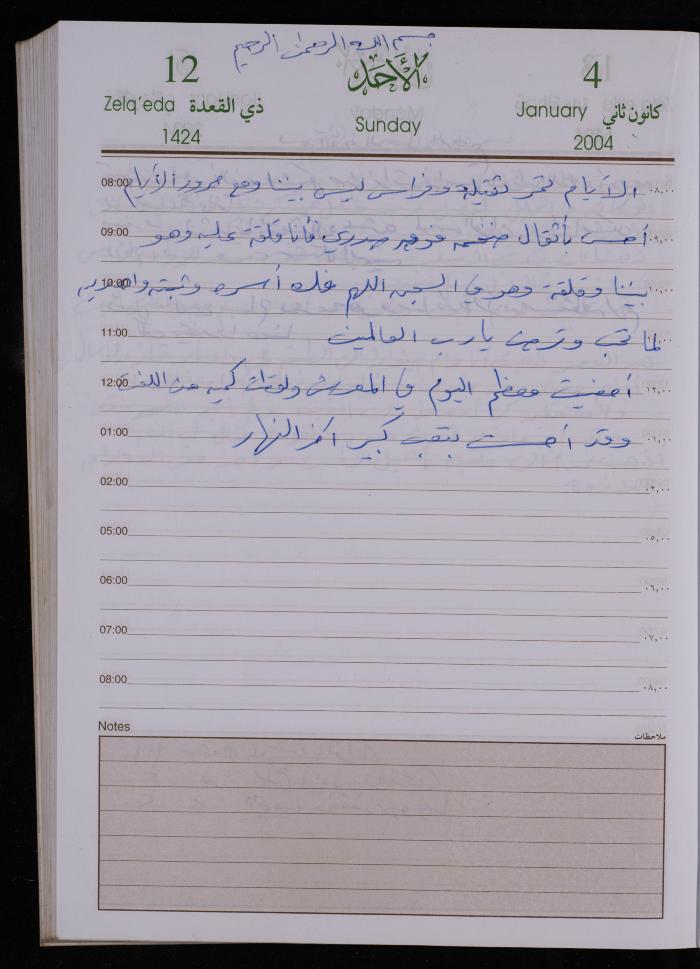 بسم الله الرحمن الرحيم
12 الأحد 4
Zelq'eda ذي القعدة Sunday January كانون ثاني
1424 2004
08:00 الأيام تمر ثقيلة وفراس ليس بيننا ومع مرور الأيام ٠٨,٠٠
09:00 أحس بأثقال ضخمة فوق صدري فأنا قلقة عليه وهو ٠٩,٠٠
10:00 بيننا وقلقة وهو في السجن اللهم فك أسره وثبته واهديه ١٠,٠٠
11:00 لما تحب وترضى يا رب العالمين ١١,٠٠
12:00 أمضيت معظم اليوم في المعرض ولوحات من اللغة ١٢,٠٠
01:00 وقد أحسست بتعب كبير آخر النهار ٠١,٠٠
02:00 ٠٢,٠٠
05:00 ٠٥,٠٠
06:00 ٠٦,٠٠
07:00 ٠٧,٠٠
08:00 ٠٨,٠٠
Notes ملاحظات